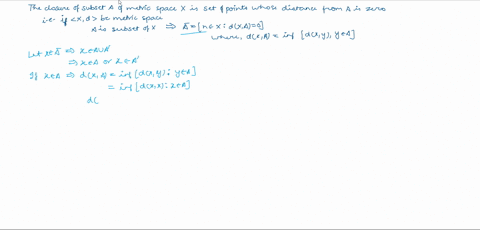 The closure of subset A of metric space X is set of points whose distance from A is zero
i.e. if <X,d> be metric space
A is subset of X ⇒ Ā = [x ∈ X : d(x,A)=0]
where, d(x,A) = inf [d(x,y), y∈A]
Let x∈Ā ⇔ x∈A∪A'
⇒ x∈A or x∈A'
If x∈A ⇒ d(x,A) = inf [d(x,y) : y∈A]
= inf [d(x,x) : x∈A]
d(